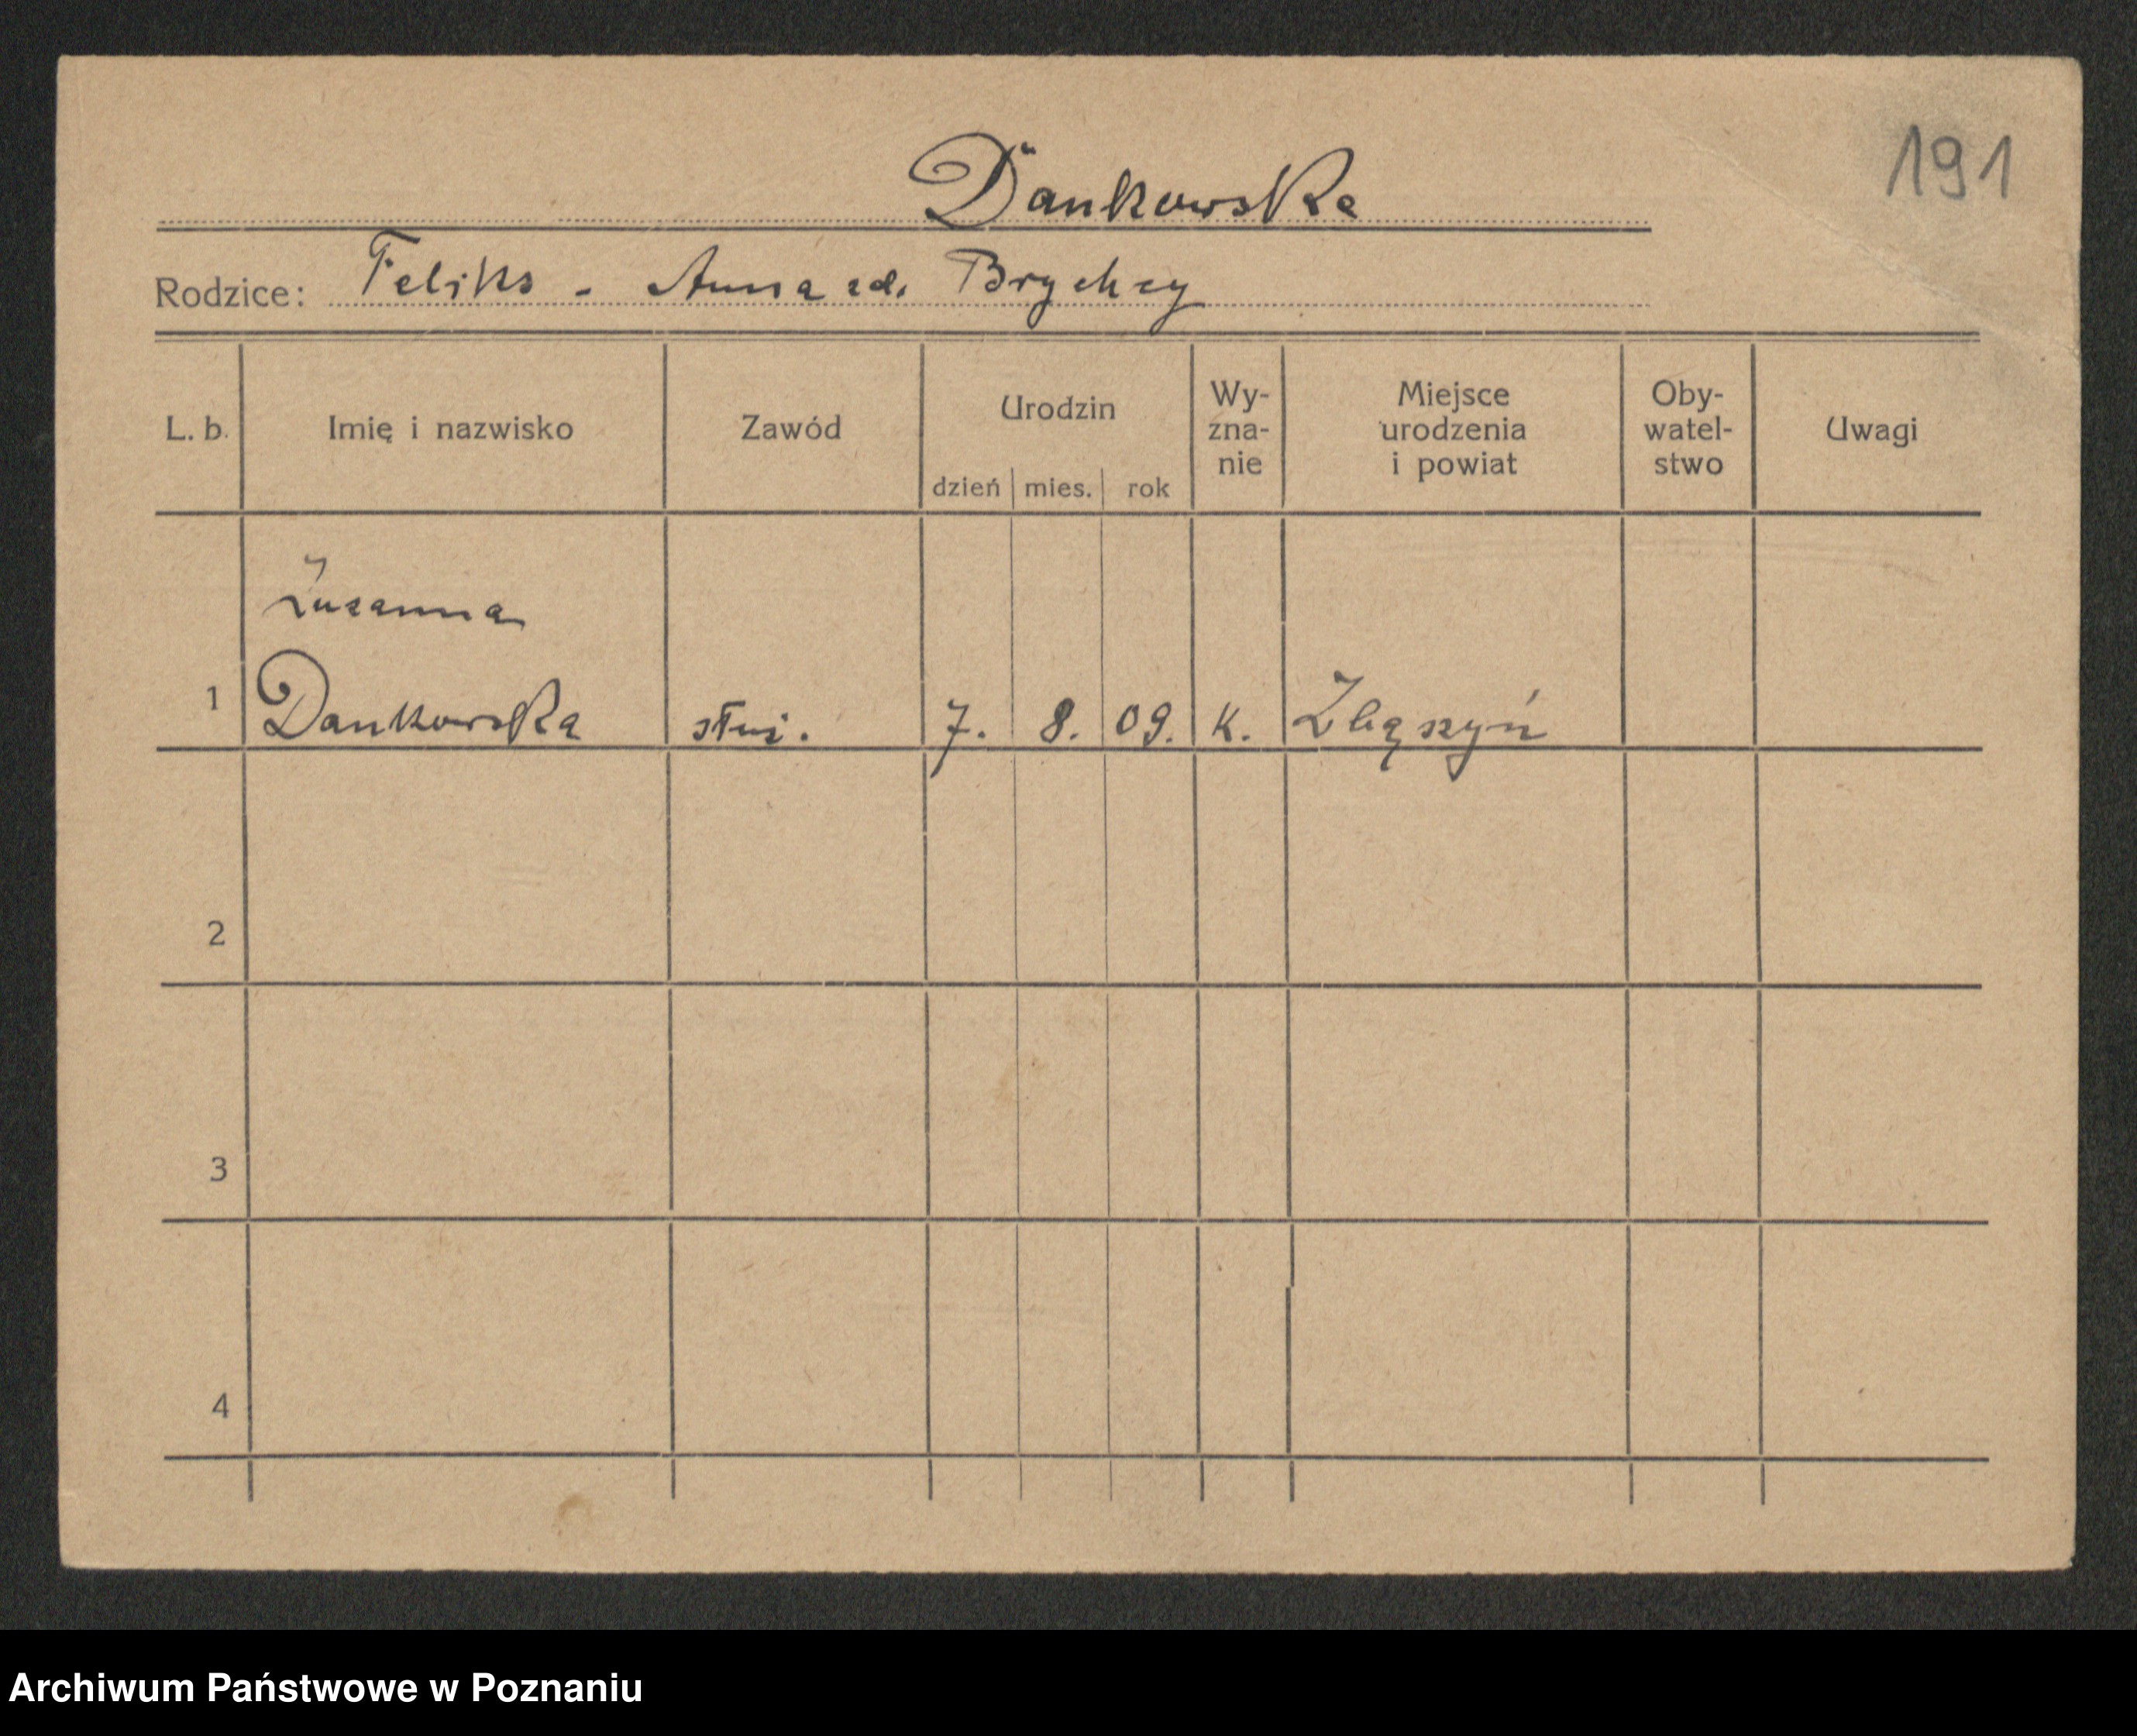 191
Dankowska
Rodzice: Feliks - Anna zd. Brychcy
L. b. Imię i nazwisko Zawód Urodzin dzień mies. rok Wy-zna-nie Miejsce urodzenia i powiat Oby-watel-stwo Uwagi
Zuzanna
1 Dankowska służ. 7. 8. 09. K. Zbąszyń
2
3
4
Archiwum Państwowe w Poznaniu